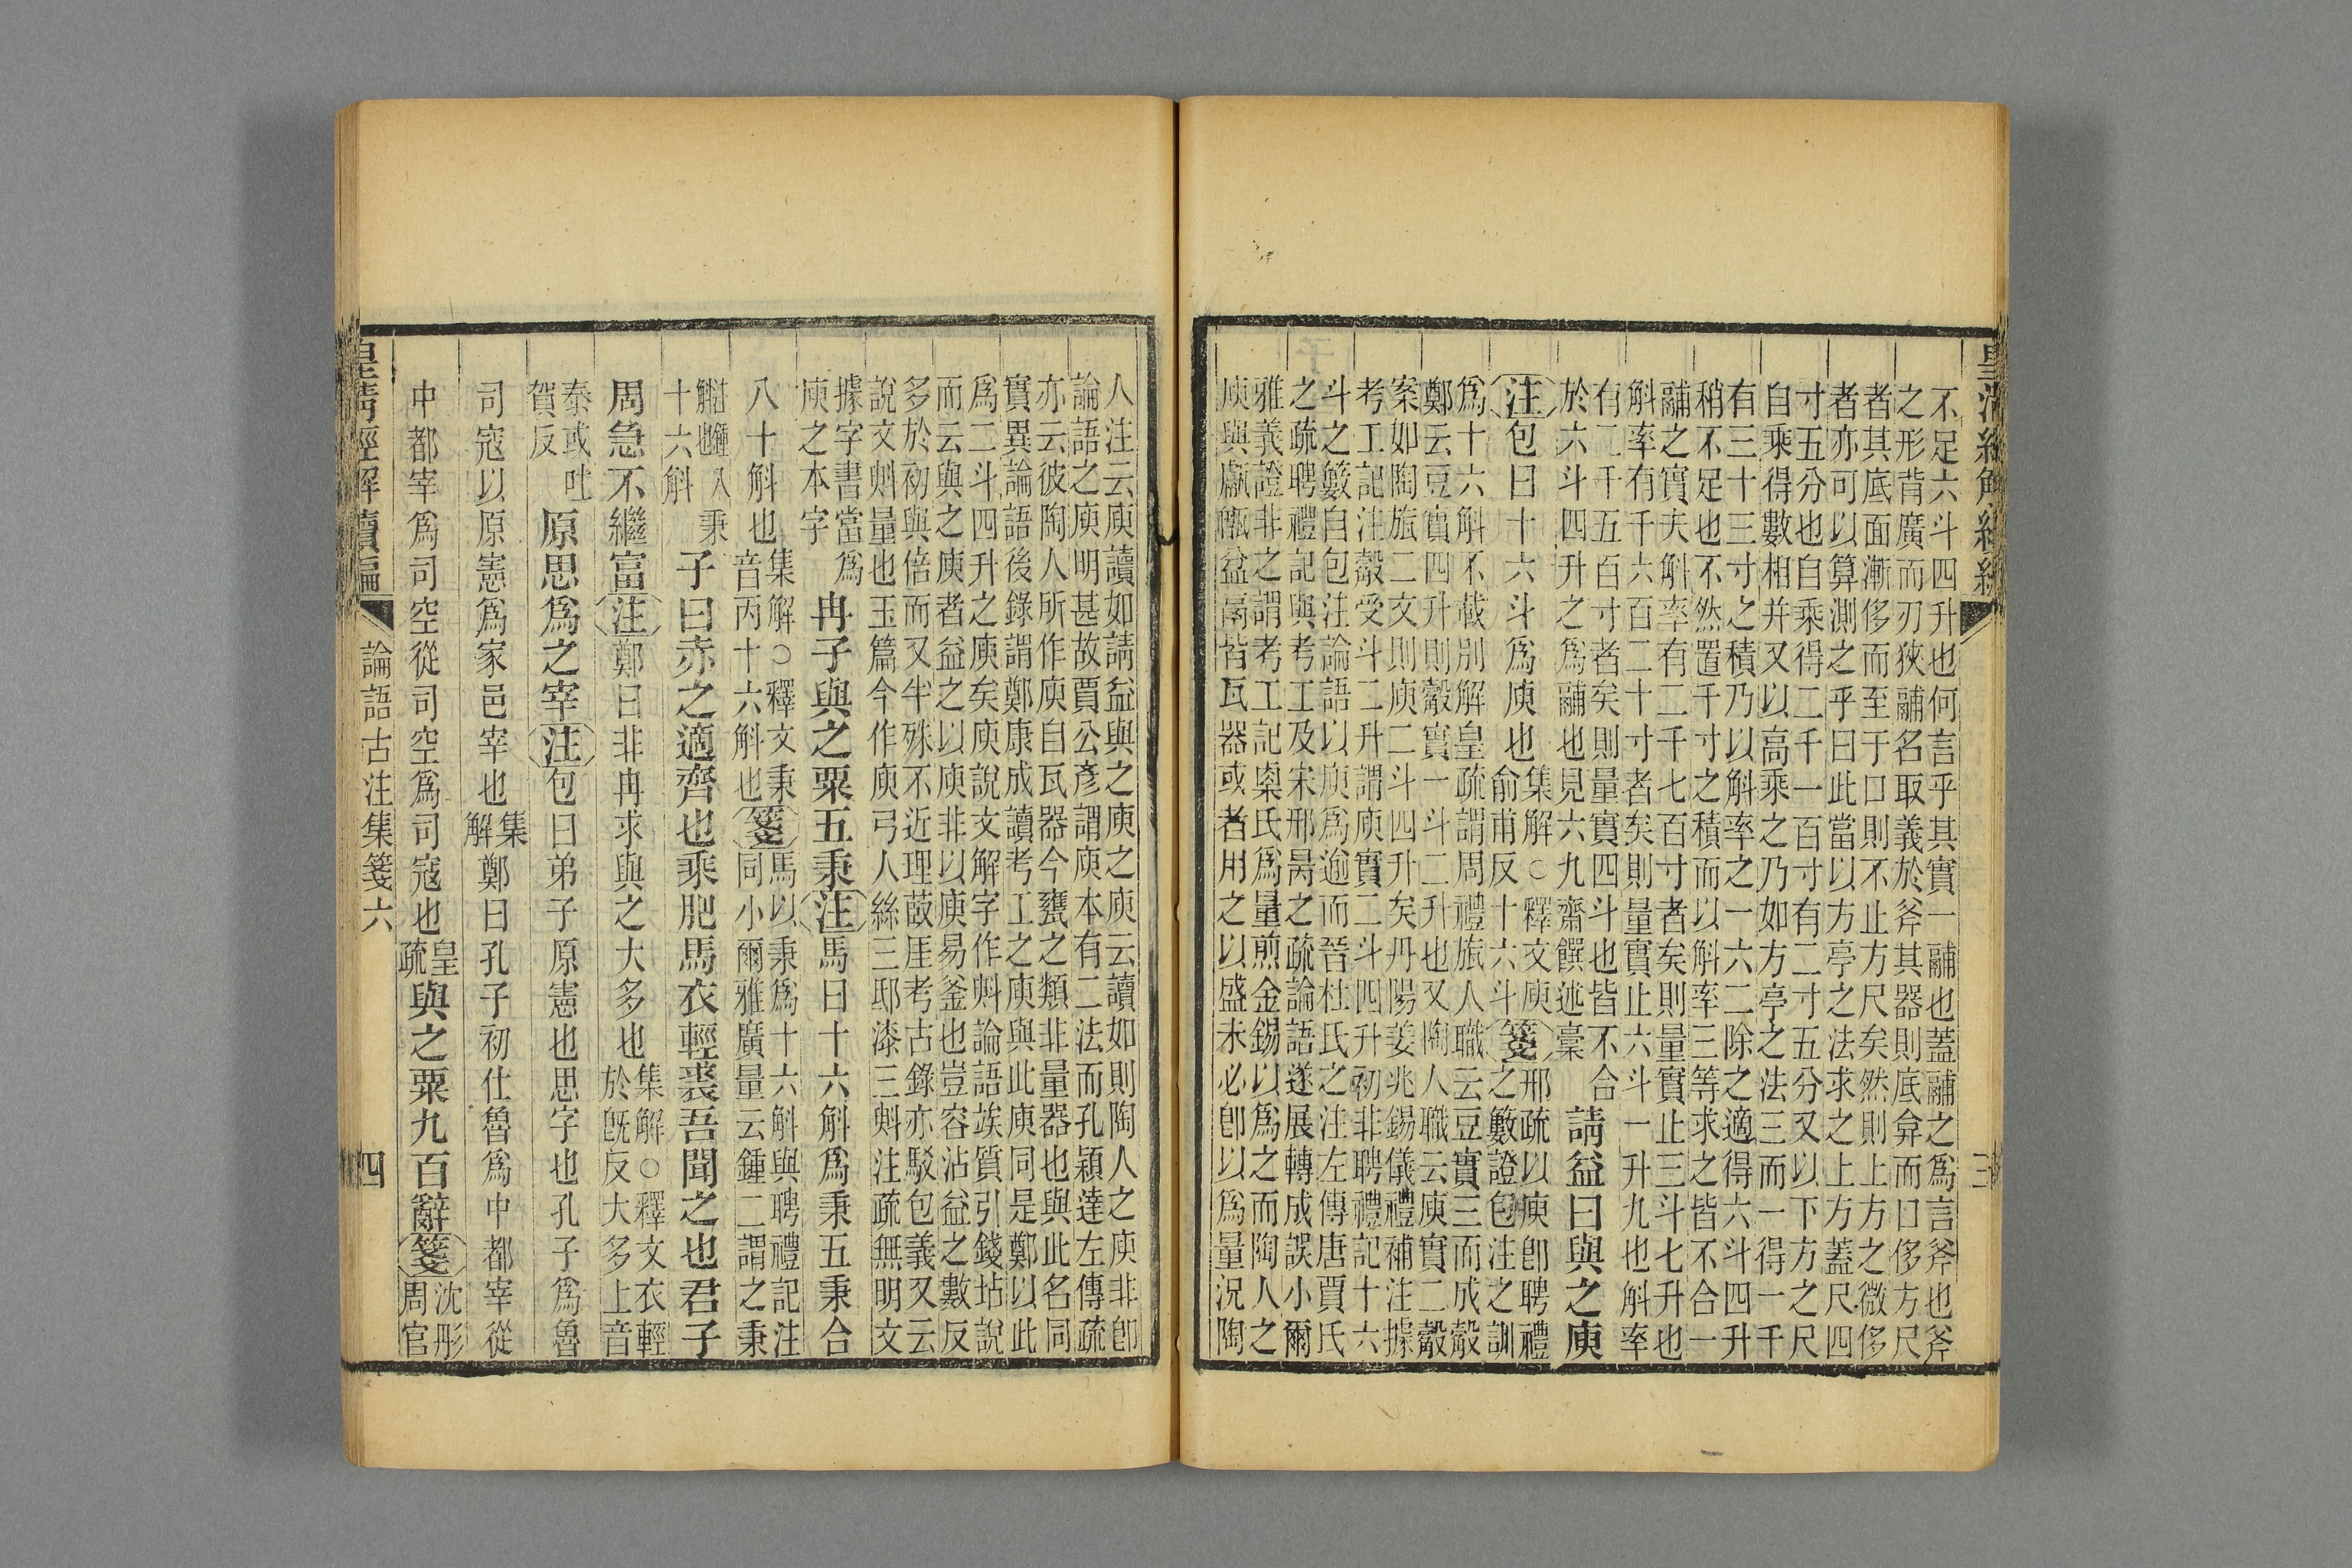 皇清經解續編
三
不足六斗四升也何言乎其實一鬴也蓋鬴之爲言斧也斧
之形背廣而刃狹鬴名取義於斧其器則底弇而口侈方尺
者其底面漸侈而至于口則不止方尺矣然則上方之微侈
者亦可以算測之乎曰此當以方亭之法求之上方蓋尺四
寸五分也自乘得二千一百寸有二寸五分又以下方之尺
自乘得數相并又以高乘之乃如方亭之法三而一得一千
有三十三寸之積乃以斛率之一六二除之適得六斗四升
稍不足也不然置千寸之積而以斛率三等求之皆不合一
鬴之實矣斛率有二千七百寸者矣則量實止三斗七升也
斛率有千六百二十寸者矣則量實止六斗一升九也斛率
有二千五百寸者矣則量實四斗也皆不合
於六斗四升之爲鬴也見六九齋饌述稾
請益曰與之庾
注包曰十六斗爲庾也
集解○釋文庾
俞甫反十六斗
箋
邢疏以庾卽聘禮
之籔證包注之訓
爲十六斛不載別解皇疏謂周禮旅人職云豆實三而成觳
鄭云豆實四升則觳實一斗二升也又陶人職云庾實二觳
案如陶旅二文則庾二斗四升矣丹陽姜兆錫儀禮補注據
考工記注觳受斗二升謂庾實二斗四升初非聘禮記十六
斗之籔自包注論語以庾爲逾而晉杜氏之注左傳唐賈氏
之疏聘禮記與考工及宋邢昺之疏論語遂展轉成誤小爾
雅義證非之謂考工記㮚氏爲量煎金錫以爲之而陶人之
庾與甗甑盆鬲皆瓦器或者用之以盛未必卽以爲量況陶
人注云庾讀如請益與之庾之庾云讀如則陶人之庾非卽
論語之庾明甚故賈公彥謂庾本有二法而孔穎達左傳疏
亦云彼陶人所作庾自瓦器今甕之類非量器也與此名同
實異論語後錄謂鄭康成讀考工之庾與此庾同是鄭以此
爲二斗四升之庾矣庾說文解字作㪷論語竢質引錢坫說
而云與之庾者益之以庾非以庾易釜也豈容沾益之數反
多於初與倍而又半殊不近理菣厓考古錄亦駁包義又云
說文㪷量也玉篇今作庾弓人絲三邸漆三㪷注疏無明文
據字書當爲
庾之本字
冉子與之粟五秉注馬曰十六斛爲秉五秉合
八十斛也
集解○釋文秉
音丙十六斛也
箋
馬以秉爲十六斛與聘禮記注
同小爾雅廣量云鍾二謂之秉
秉
十六斛
子曰赤之適齊也乘肥馬衣輕裘吾聞之也君子
周急不繼富注鄭曰非冉求與之大多也
集解○釋文衣輕
於旣反大多上音
泰或吐
賀反
原思爲之宰注包曰弟子原憲也思字也孔子爲魯
司寇以原憲爲家邑宰也
集
解
鄭曰孔子初仕魯爲中都宰從
中都宰爲司空從司空爲司寇也
皇
疏
與之粟九百辭箋
沈彤
周官
皇清經解續編
論語古注集箋六
四